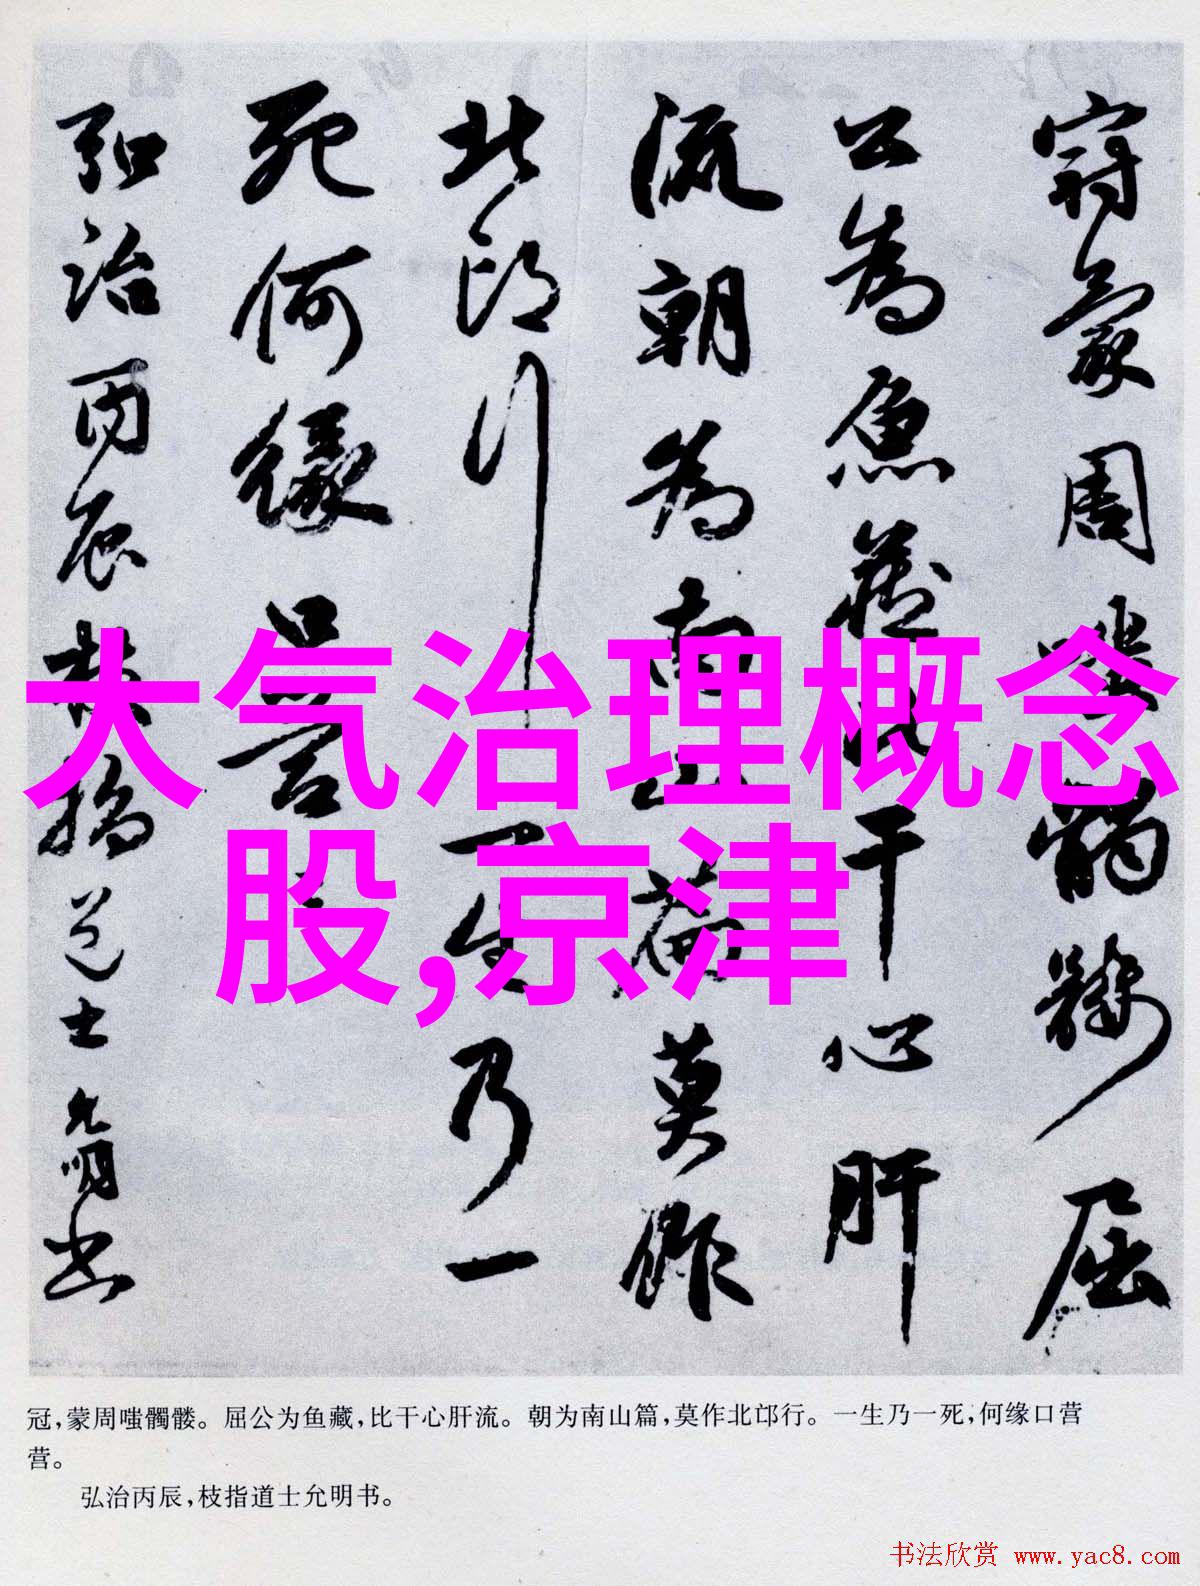 冠蒙周嗤髑髅屈
公为鱼藏比干心肝
流朝为南山篇莫作
北邙行一生乃一
死何缘口营营
弘治丙辰枝指道士允明书
大气治理概念
股,京津
冠,蒙周嗤髑髅。屈公为鱼藏,比干心肝流。朝为南山篇,莫作北邙行。一生乃一死,何缘口营
营。
弘治丙辰,枝指道士允明书。
书法欣赏 www.yac8.com